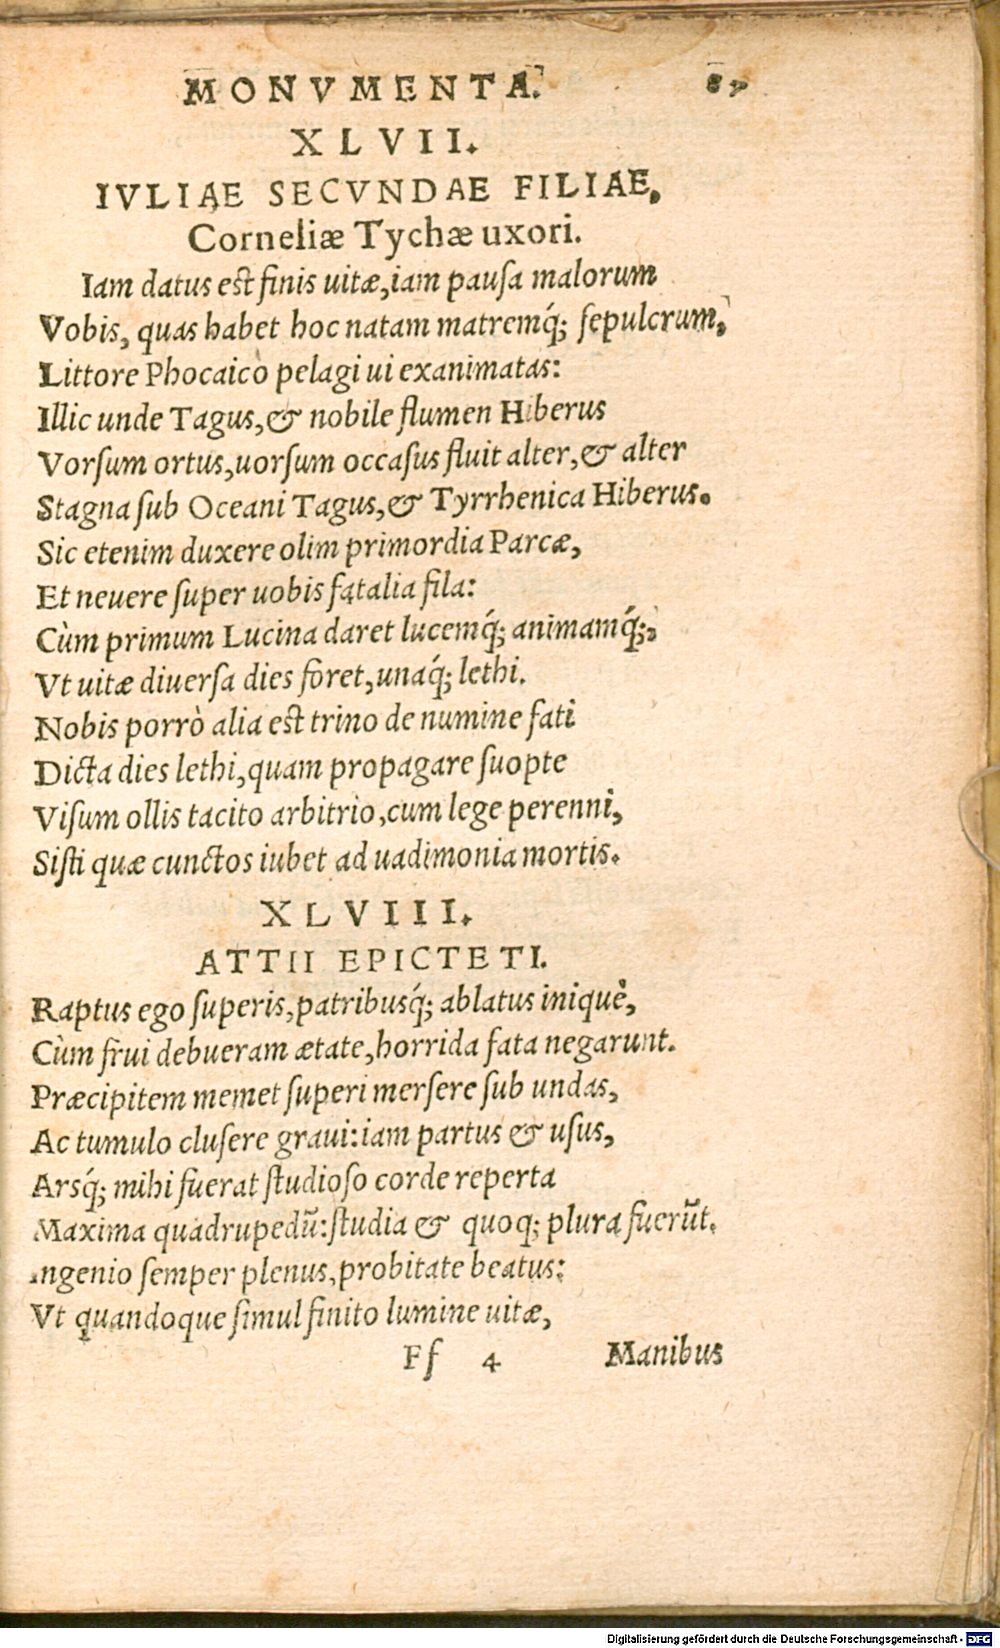 MONVMENTA. 87
XLVII.
IVLIAE SECVNDAE FILIAE,
Corneliæ Tychæ uxori.
Iam datus est finis uitæ, iam pausa malorum
Vobis, quas habet hoc natam matremq́; sepulcrum,
Littore Phocaico pelagi ui exanimatas:
Illic unde Tagus, & nobile flumen Hiberus
Vorsum ortus, uorsum occasus fluit alter, & alter
Stagna sub Oceani Tagus, & Tyrrhenica Hiberus.
Sic etenim duxere olim primordia Parcæ,
Et neuere super uobis fatalia fila:
Cùm primum Lucina daret lucemq́; animamq́;,
Vt uitæ diuersa dies foret, unaq́; lethi.
Nobis porrò alia est trino de numine fati
Dicta dies lethi, quam propagare suopte
Visum ollis tacito arbitrio, cum lege perenni,
Sisti quæ cunctos iubet ad uadimonia mortis.
XLVIII.
ATTII EPICTETI.
Raptus ego superis, patribusq́; ablatus iniquè,
Cùm frui debueram ætate, horrida fata negarunt.
Præcipitem memet superi mersere sub undas,
Ac tumulo clusere graui: iam partus & usus,
Arsq́; mihi fuerat studioso corde reperta
Maxima quadrupedũ: studia & quoq; plura fuerũt.
Ingenio semper plenus, probitate beatus:
Vt quandoque simul finito lumine uitæ,
Ff 4 Manibus
Digitalisierung gefördert durch die Deutsche Forschungsgemeinschaft - DFG